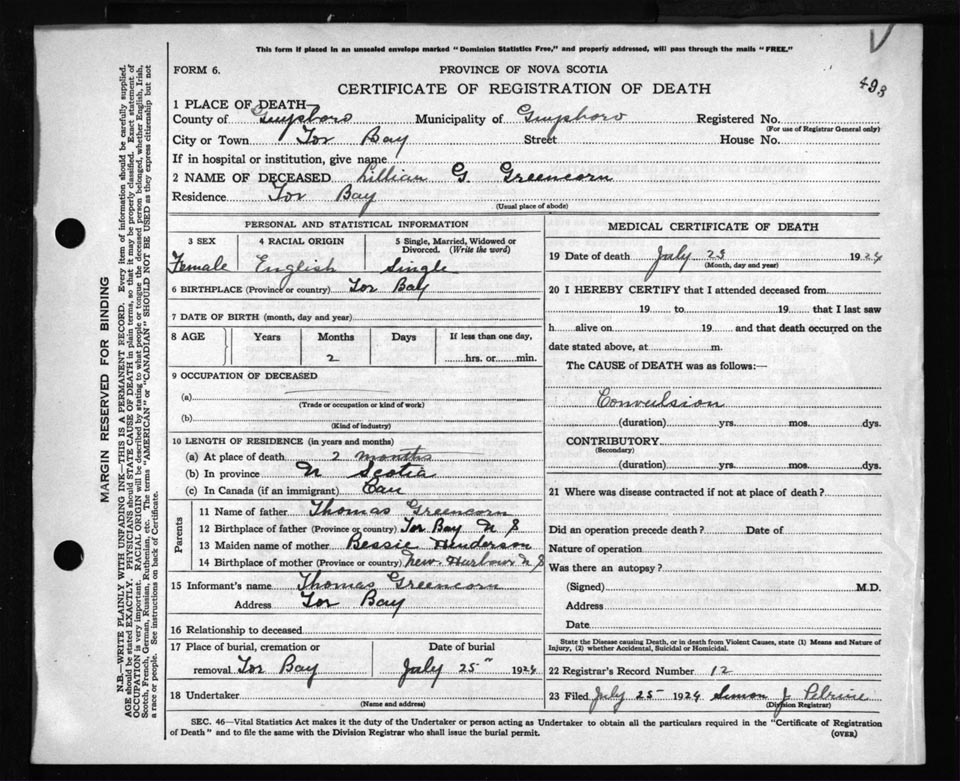 This form if placed in an unsealed envelope marked "Dominion Statistics Free," and properly addressed, will pass through the mails "FREE."
FORM 6.
PROVINCE OF NOVA SCOTIA
493
CERTIFICATE OF REGISTRATION OF DEATH
1 PLACE OF DEATH—
County of Guysboro Municipality of Guysboro Registered No.
(For use of Registrar General only)
City or Town Tor Bay Street House No.
If in hospital or institution, give name
2 NAME OF DECEASED Lillian G. Greencorn
Residence Tor Bay
(Usual place of abode)
PERSONAL AND STATISTICAL INFORMATION
3 SEX 4 RACIAL ORIGIN 5 Single, Married, Widowed or Divorced. (Write the word)
Female English Single
6 BIRTHPLACE (Province or country) Tor Bay
7 DATE OF BIRTH (month, day and year)
8 AGE Years Months Days If less than one day,
2 hrs. or min.
9 OCCUPATION OF DECEASED
(a)
(Trade or occupation or kind of work)
(b)
(Kind of industry)
10 LENGTH OF RESIDENCE (in years and months)
(a) At place of death 2 months
(b) In province N Scotia
(c) In Canada (if an immigrant) Can
Parents
11 Name of father Thomas Greencorn
12 Birthplace of father (Province or country) Tor Bay N S
13 Maiden name of mother Bessie Henderson
14 Birthplace of mother (Province or country) New Harbour N S
15 Informant's name Thomas Greencorn
Address Tor Bay
16 Relationship to deceased
17 Place of burial, cremation or Date of burial
removal Tor Bay July 25 1924
18 Undertaker
(Name and address)
MEDICAL CERTIFICATE OF DEATH
19 Date of death July 23 1924
(Month, day and year)
20 I HEREBY CERTIFY that I attended deceased from
19 to 19 that I last saw
h alive on 19 and that death occurred on the
date stated above, at m.
The CAUSE of DEATH was as follows:—
Convulsion
(duration) yrs. mos. dys.
CONTRIBUTORY
(Secondary)
(duration) yrs. mos. dys.
21 Where was disease contracted if not at place of death?
Did an operation precede death? Date of
Nature of operation
Was there an autopsy?
(Signed) M.D.
Address
Date
State the Disease causing Death, or in death from Violent Causes, state (1) Means and Nature of
Injury, (2) whether Accidental, Suicidal or Homicidal.
22 Registrar's Record Number 12
23 Filed July 25 1924 Simon J. Pelrine
(Division Registrar)
SEC. 46—Vital Statistics Act makes it the duty of the Undertaker or person acting as Undertaker to obtain all the particulars required in the "Certificate of Registration
of Death" and to file the same with the Division Registrar who shall issue the burial permit.
(OVER)
MARGIN RESERVED FOR BINDING
N.B.—WRITE PLAINLY WITH UNFADING INK—THIS IS A PERMANENT RECORD. Every item of information should be carefully supplied.
AGE should be stated EXACTLY. PHYSICIANS should STATE CAUSE OF DEATH in plain terms, so that it may be properly classified. Exact statement of
OCCUPATION is very important. RACIAL ORIGIN will be described by stating to what people or tongue the deceased person belonged, whether English, Irish,
Scotch, French, German, Russian, Ruthenian, etc. The terms "AMERICAN" or "CANADIAN" SHOULD NOT BE USED as they express citizenship but not
a race or people. See instructions on back of Certificate.